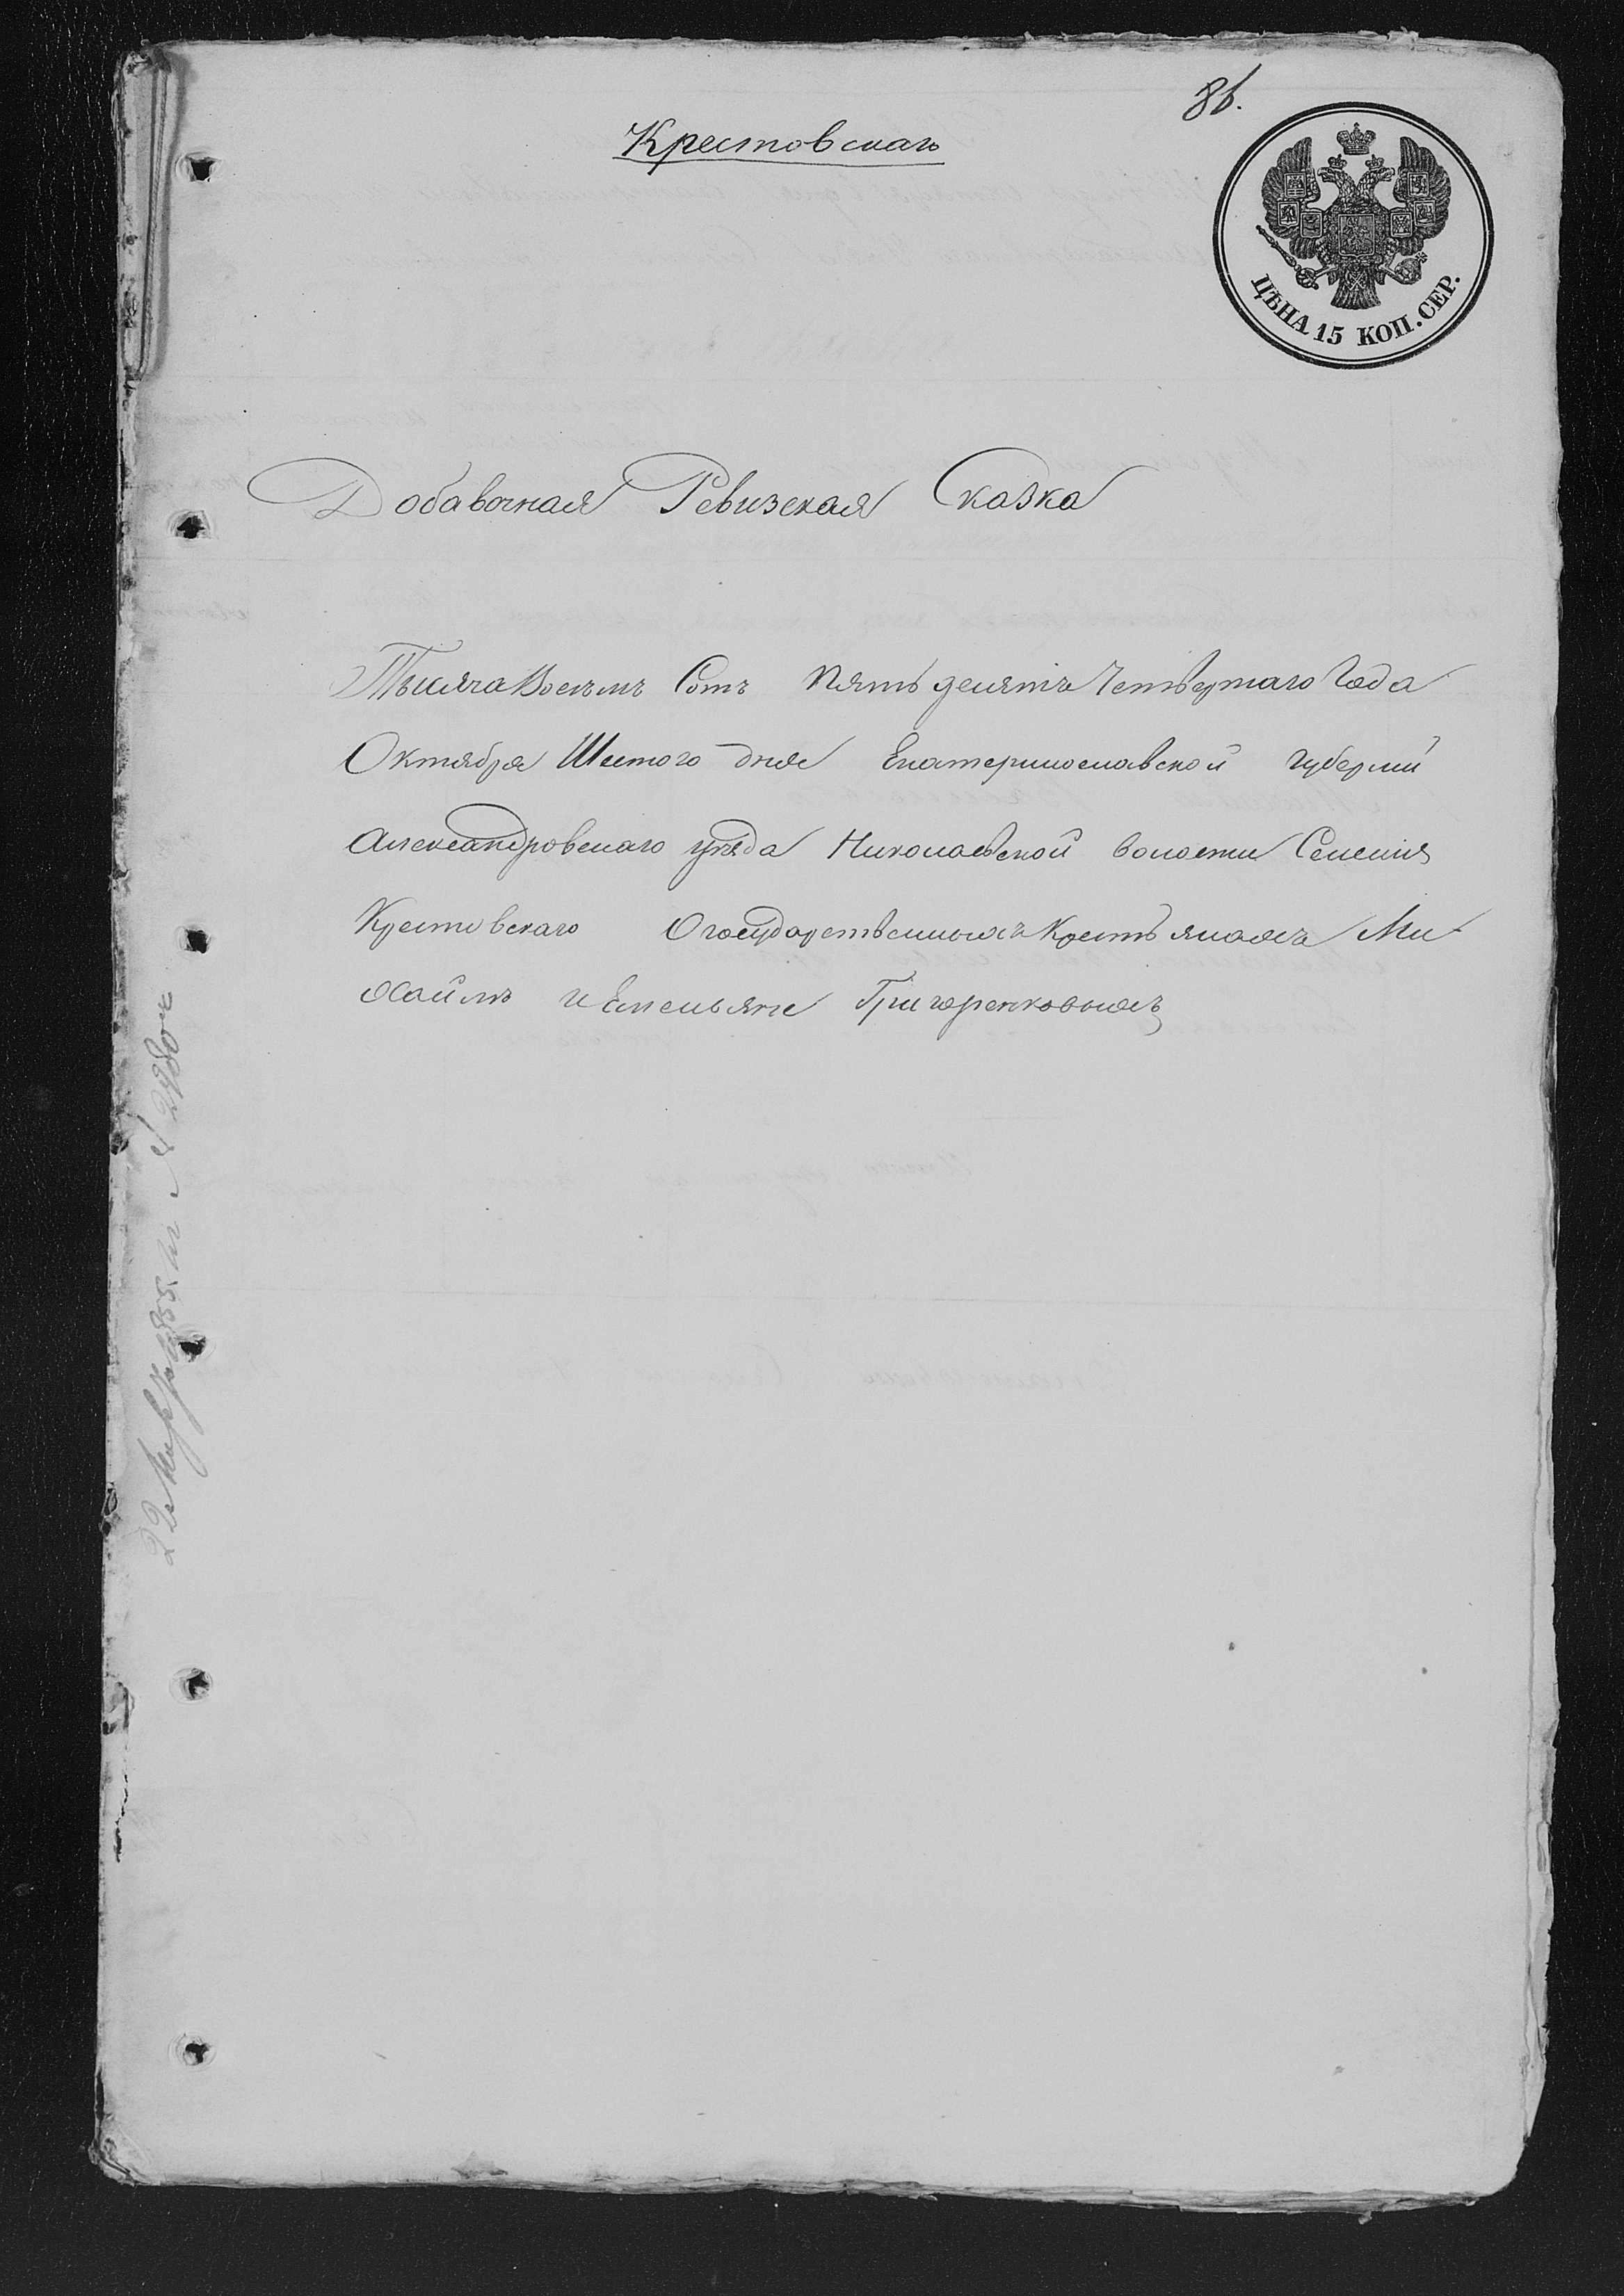 86.
Крестовскаго
ЦѢНА 15 КОП. СЕР.
Добавочная Ревизская Сказка
Тысяча Восемъ Сотъ Пятьдесятъ Четвертаго Года
Октября Шестого дня Екатеринославской губерніи
Александровскаго уѣзда Николаевской волости Селенія
Крестовскаго О государственныхъ Крестьянахъ Ми
хайлѣ и Емельянѣ Григоренковыхъ